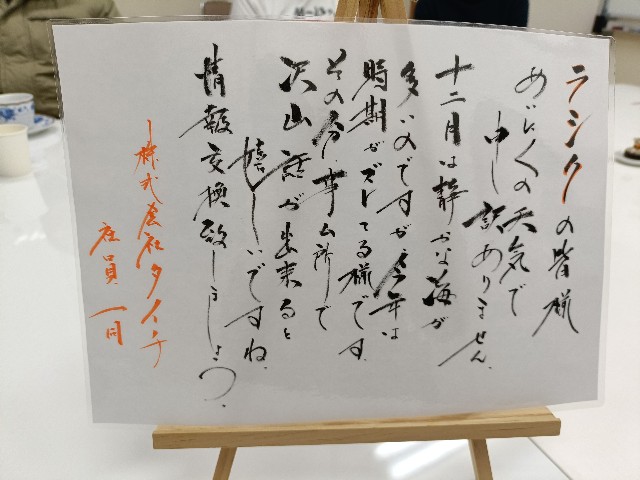 ラシクの皆様
あいにくの天気で
申し訳ありません。
十二月は静かな海が
多いのですが今年は
時期がズレてる様です。
その分、事ム所で
沢山話が出来ると
嬉しいですね。
情報交換致しましょう。
株式会社タイチ
社員一同